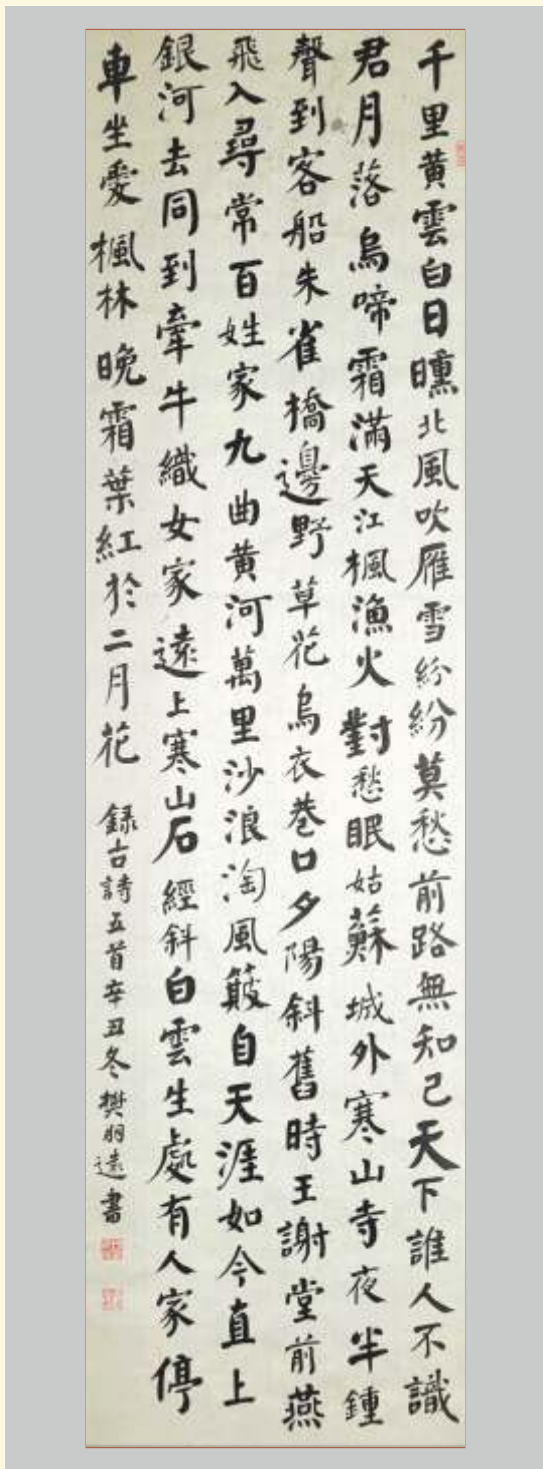 千里黃雲白日曛北風吹雁雪紛紛莫愁前路無知己天下誰人不識
君月落烏啼霜滿天江楓漁火對愁眠姑蘇城外寒山寺夜半鍾
聲到客船朱雀橋邊野草花烏衣巷口夕陽斜舊時王謝堂前燕
飛入尋常百姓家九曲黃河萬里沙浪淘風簸自天涯如今直上
銀河去同到牽牛織女家遠上寒山石經斜白雲生處有人家停
車坐愛楓林晚霜葉紅於二月花 錄古詩五首辛丑冬樊明遠書